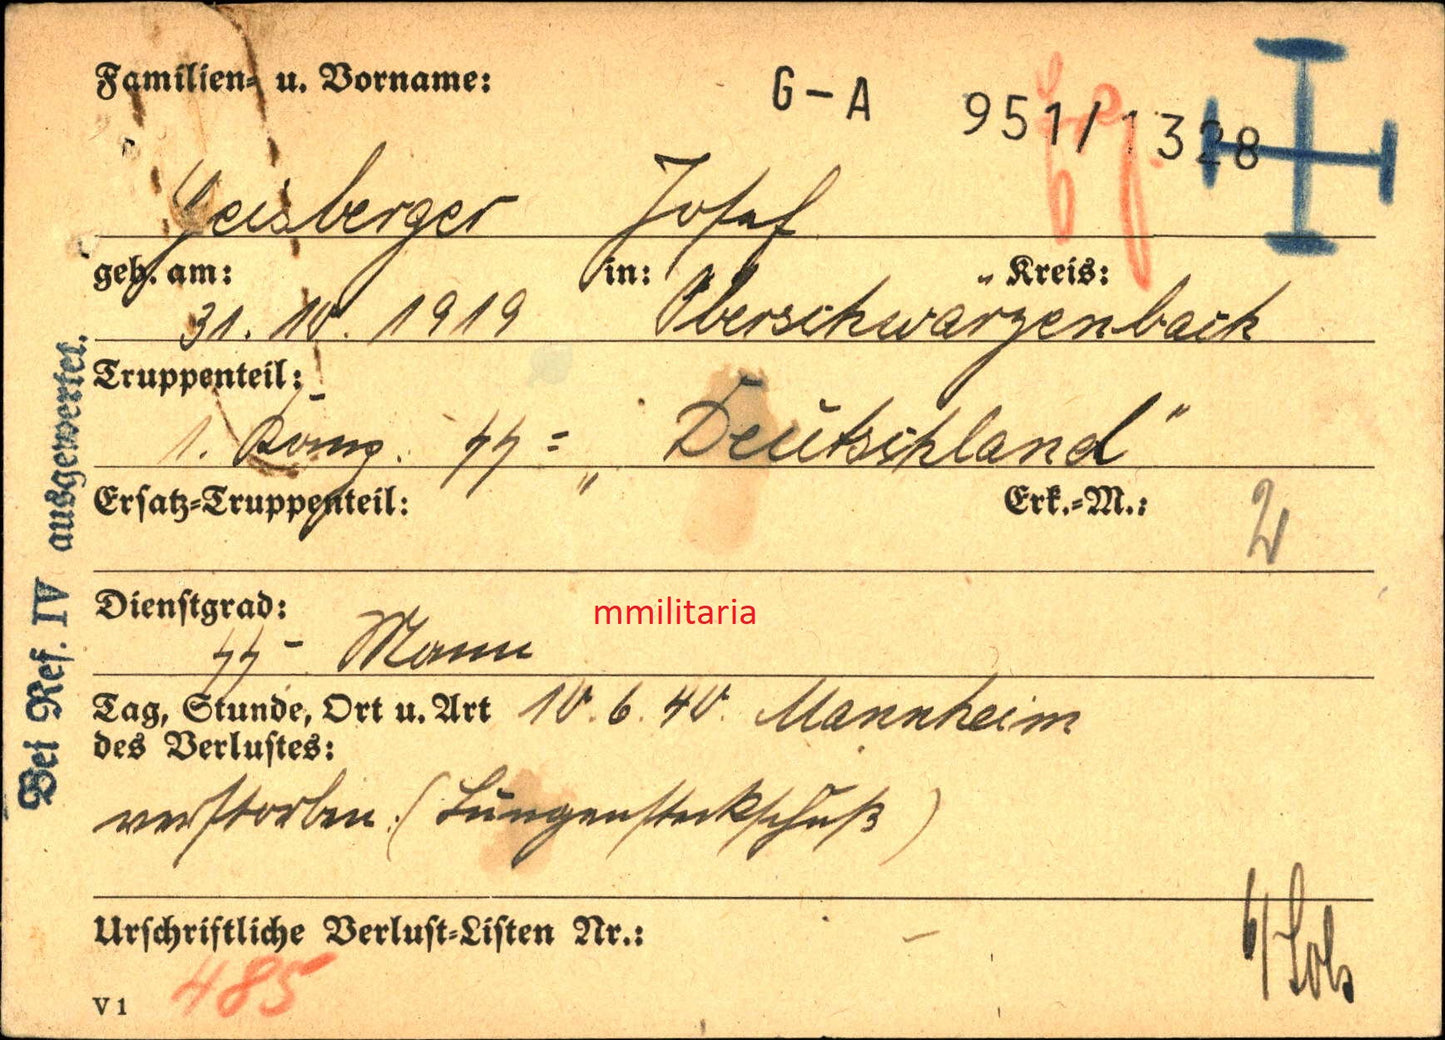 Familien- u. Vorname:
G-A 951/1328
Geisberger Josef
geb. am: in: Kreis:
31. 10. 1919 Oberschwärzenbach
Truppenteil:
1. Komp. SS= „Deutschland"
Ersatz-Truppenteil: Erk.-M.: 2
Dienstgrad:
SS- Mann
mmilitaria
Tag, Stunde, Ort u. Art 10. 6. 40. Mannheim
des Verlustes:
verstorben. (Lungensteckschuß)
Urschriftliche Verlust-Listen Nr.: -
485
V 1
Bei Ref. IV ausgewertet.